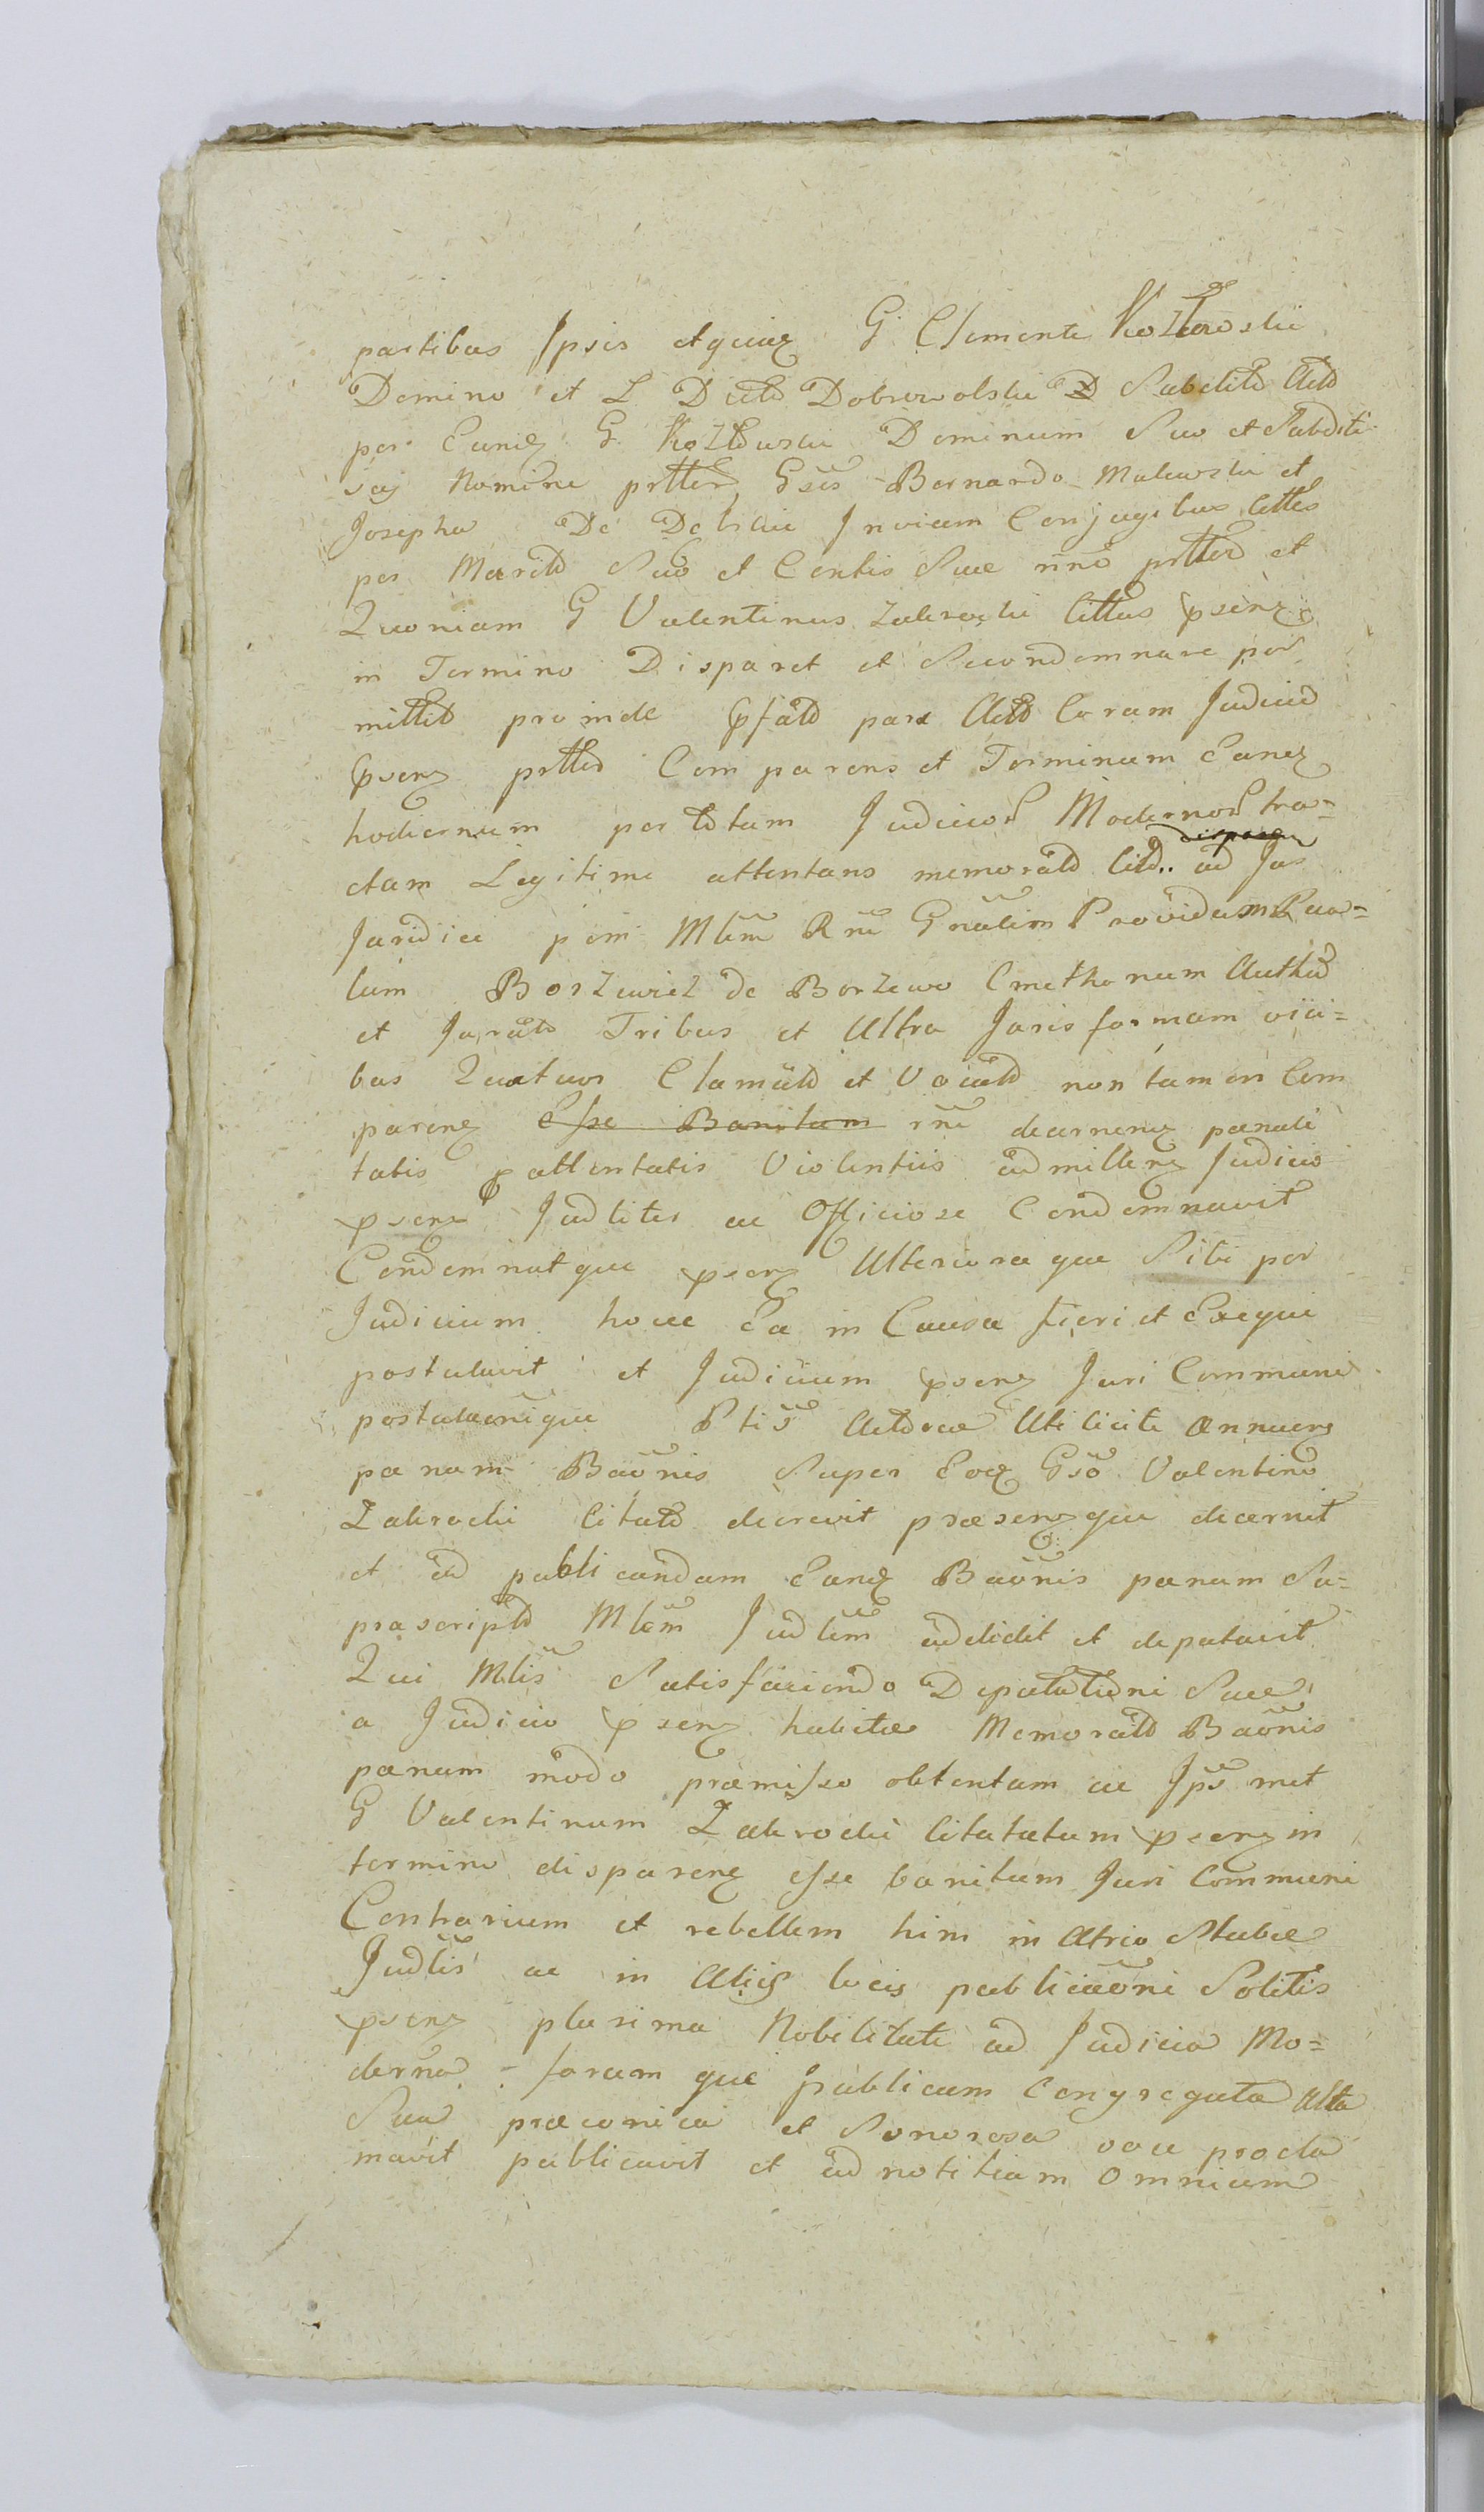 partibus Ipsis G. Clemente Kozłowskii
Domino et L Dobrowolski Subdito Acto
per G. Kozłowski Dominum Suo et Subditi
sui Nomine Gsis Bernardo Makowski et
Josepha De Invicem Conjugibus
per Marito Suo et Contis Suae et
Quoniam G Valentinus Zakrocki psenz
in Termino Disparet et Secondemnare per
mittit proinde pars Coram Judicio
psenz Comparens et Terminum
hodiernum per totum Judicior Modernor tra=
ctum Legitime attentans memorato ad Jus
Juridice pem Mlem Rni Gnalem Providum Pau=
lum Borzuwiez de Borzewo Cmethonum
et Jurato Tribus et Ultra Juris formam vici=
bus Quatuor Clamato et Vocato non tamen Com
parenz Esse Banitum rne decernenz paenali
tatis pattentatis Violentiis admittenz Judicio
psenz Judliter ac Officiose Condemnavit
Condemnatque psenz Ulteriora que Sibi per
Judicium hocce Ea in Causa fieri et Exequi
postulavit et Judicium psenz Juri Communi
postulaonique Ptis Actorea Annuens
paenam Baonis Super Gso Valentino
Zakrocki Citato decrevit praesenzque decernit
et ad publicandam Baonis paenam Su=
prascripto Mlem Judlem addidit et deputavit
Qui Mlis Satisfaciendo Deputationi Suae
a Judicio psenz habitae Memorato Baonis
paenam modo praemisso obtentam ac Ips met
G Valentinum Zakrocki Citatatum psenz in
termino disparenz esse banitum Juri Communi
Contrarium et rebellem him in Atrio Stubae
Judlis ac in Aliis locis publicaoni Solitis
psenz plurima Nobilitate ad Judicia Mo=
derna forum que publicum Congregata Alta
Sua praeconica et Sonorosa voce procla
mavit publicavit et ad notitiam Omnium